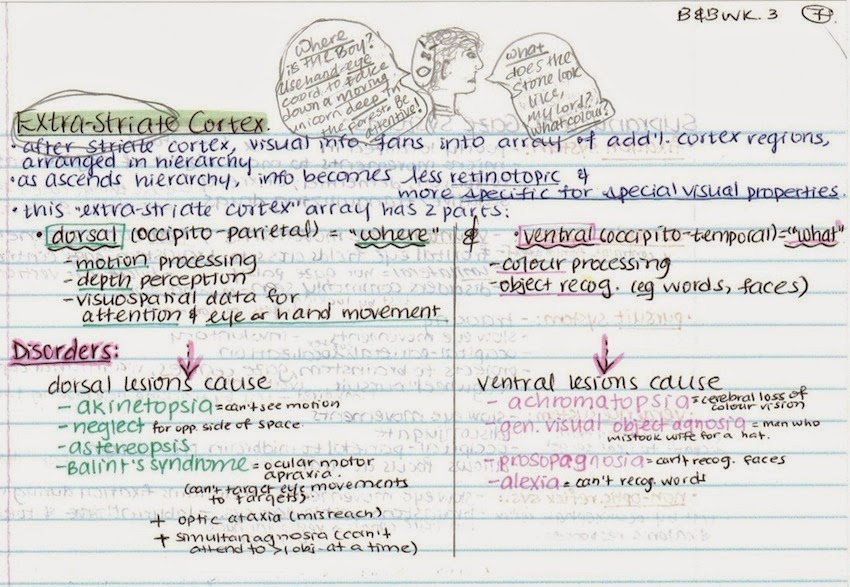 B&B WK. 3 7.
Where
is THE Boy?
Use hand-eye
coord to take
down a moving
unicorn deep in
the forest. Be
attentive!
What
does the
stone look
like,
my lord?
What colour?
Extra-Striate Cortex.
• after striate cortex, visual info fans into array of add'l. cortex regions,
arranged in hierarchy
• as ascends hierarchy, info becomes less retinotopic &
more specific for special visual properties.
• this "extra-striate cortex" array has 2 parts:
• dorsal (occipito-parietal) = "where" &
- motion processing
- depth perception
- visuospatial data for
attention & eye or hand movement
• ventral (occipito-temporal) = "what"
- colour processing
- object recog. (eg words, faces)
Disorders:
dorsal lesions cause
- akinetopsia = can't see motion
- neglect for opp. side of space
- astereopsis
- Balint's syndrome = ocular motor
apraxia.
(can't target eye movements
to targets)
+ optic ataxia (misreach)
+ simultanagnosia (can't
attend to >1 obj. at a time)
ventral lesions cause
- achromatopsia = cerebral loss of
colour vision
- gen. visual object agnosia = man who
mistook wife for a hat.
- prosopagnosia = can't recog. faces
- alexia = can't recog. words